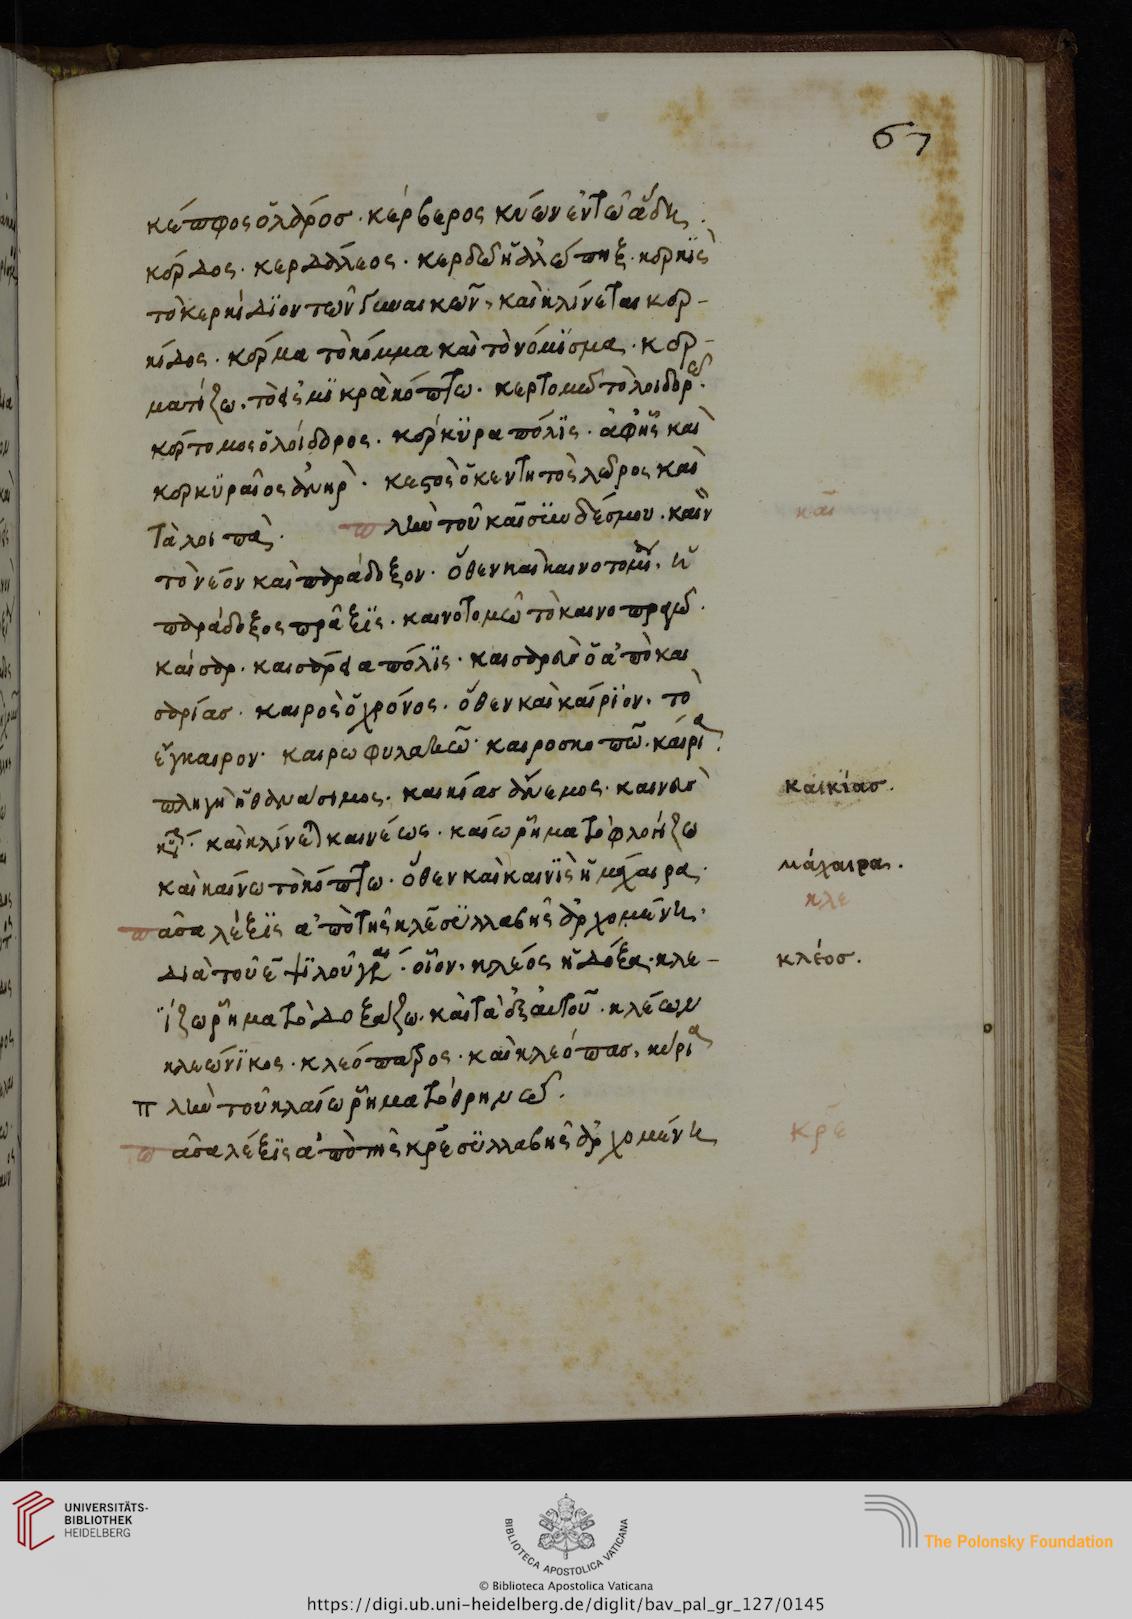 67
κέπφος ὁ λάρος. κέρβερος κύων ἐν τῶ ἅδη.
κέρδος. κερδαλέος. κερδὼ ἡ ἀλώπηξ. κερκὶς
τὸ κερκίδιον τῶν γυναικῶν. καὶ κλίνεται κερ-
κίδος. κέρμα τὸ κόμμα καὶ τὸ νόμισμα. κερ-
ματίζω. τὸ εἰς μικρὰ κόπτω. κερτομῶ τὸ λοιδορῶ.
κέρτομος ὁ λοίδορος. κέρκυρα πόλις. ἀφ' ἧς καὶ
κερκυραῖος ἀνὴρ. κεστὸς ὁ κεντητὸς λῶρος καὶ
τὰ λοιπὰ. πλὴν τοῦ καὶ συνδέσμου. καινὸν
τὸ νέον καὶ παράδοξον. ὅθεν καὶ καινοτομία. ἡ
παράδοξος πράξις. καινοτομῶ τὸ καινοπραγῶ.
καίσαρ. καισάρεια πόλις. καισαρεὺς ὁ ἀπὸ και
σαρείας. καιρὸς ὁ χρόνος. ὅθεν καὶ καίριον. τὸ
εὔκαιρον. καιροφυλακῶ. καιροσκοπῶ. καιρία.
πληγὴ ἡ θανάσιμος. καικίας ἄνεμος. καινεὺς
καὶ κλίνεται καινέως. καίω ῥῆμα τὸ φλογίζω
καὶ καίνω τὸ κόπτω. ὅθεν καὶ καινὶς ἡ μάχαιρα.
πᾶσα λέξις ἀπὸ τῆς κλε συλλαβῆς ἀρχομένη.
διὰ τοῦ ε ψιλοῦ γράφεται. οἷον. κλέος ἡ δόξα. κλε-
ΐζω ῥῆμα τὸ δοξάζω. καὶ τὰ ἐξ αὐτοῦ. κλέων
κλεώνικος. κλεόπατρος. καὶ κλεόπας. κύρια
π λὴν τοῦ κλαίω ῥῆμα τὸ θρηνῶ.
πᾶσα λέξις ἀπὸ τῆς κρε συλλαβῆς ἀρχομένη
και
καικίασ.
μάχαιρα.
κλε
κλέοσ.
κρε
UNIVERSITÄTS-
BIBLIOTHEK
HEIDELBERG
BIBLIOTECA APOSTOLICA VATICANA
The Polonsky Foundation
© Biblioteca Apostolica Vaticana
https://digi.ub.uni-heidelberg.de/diglit/bav_pal_gr_127/0145